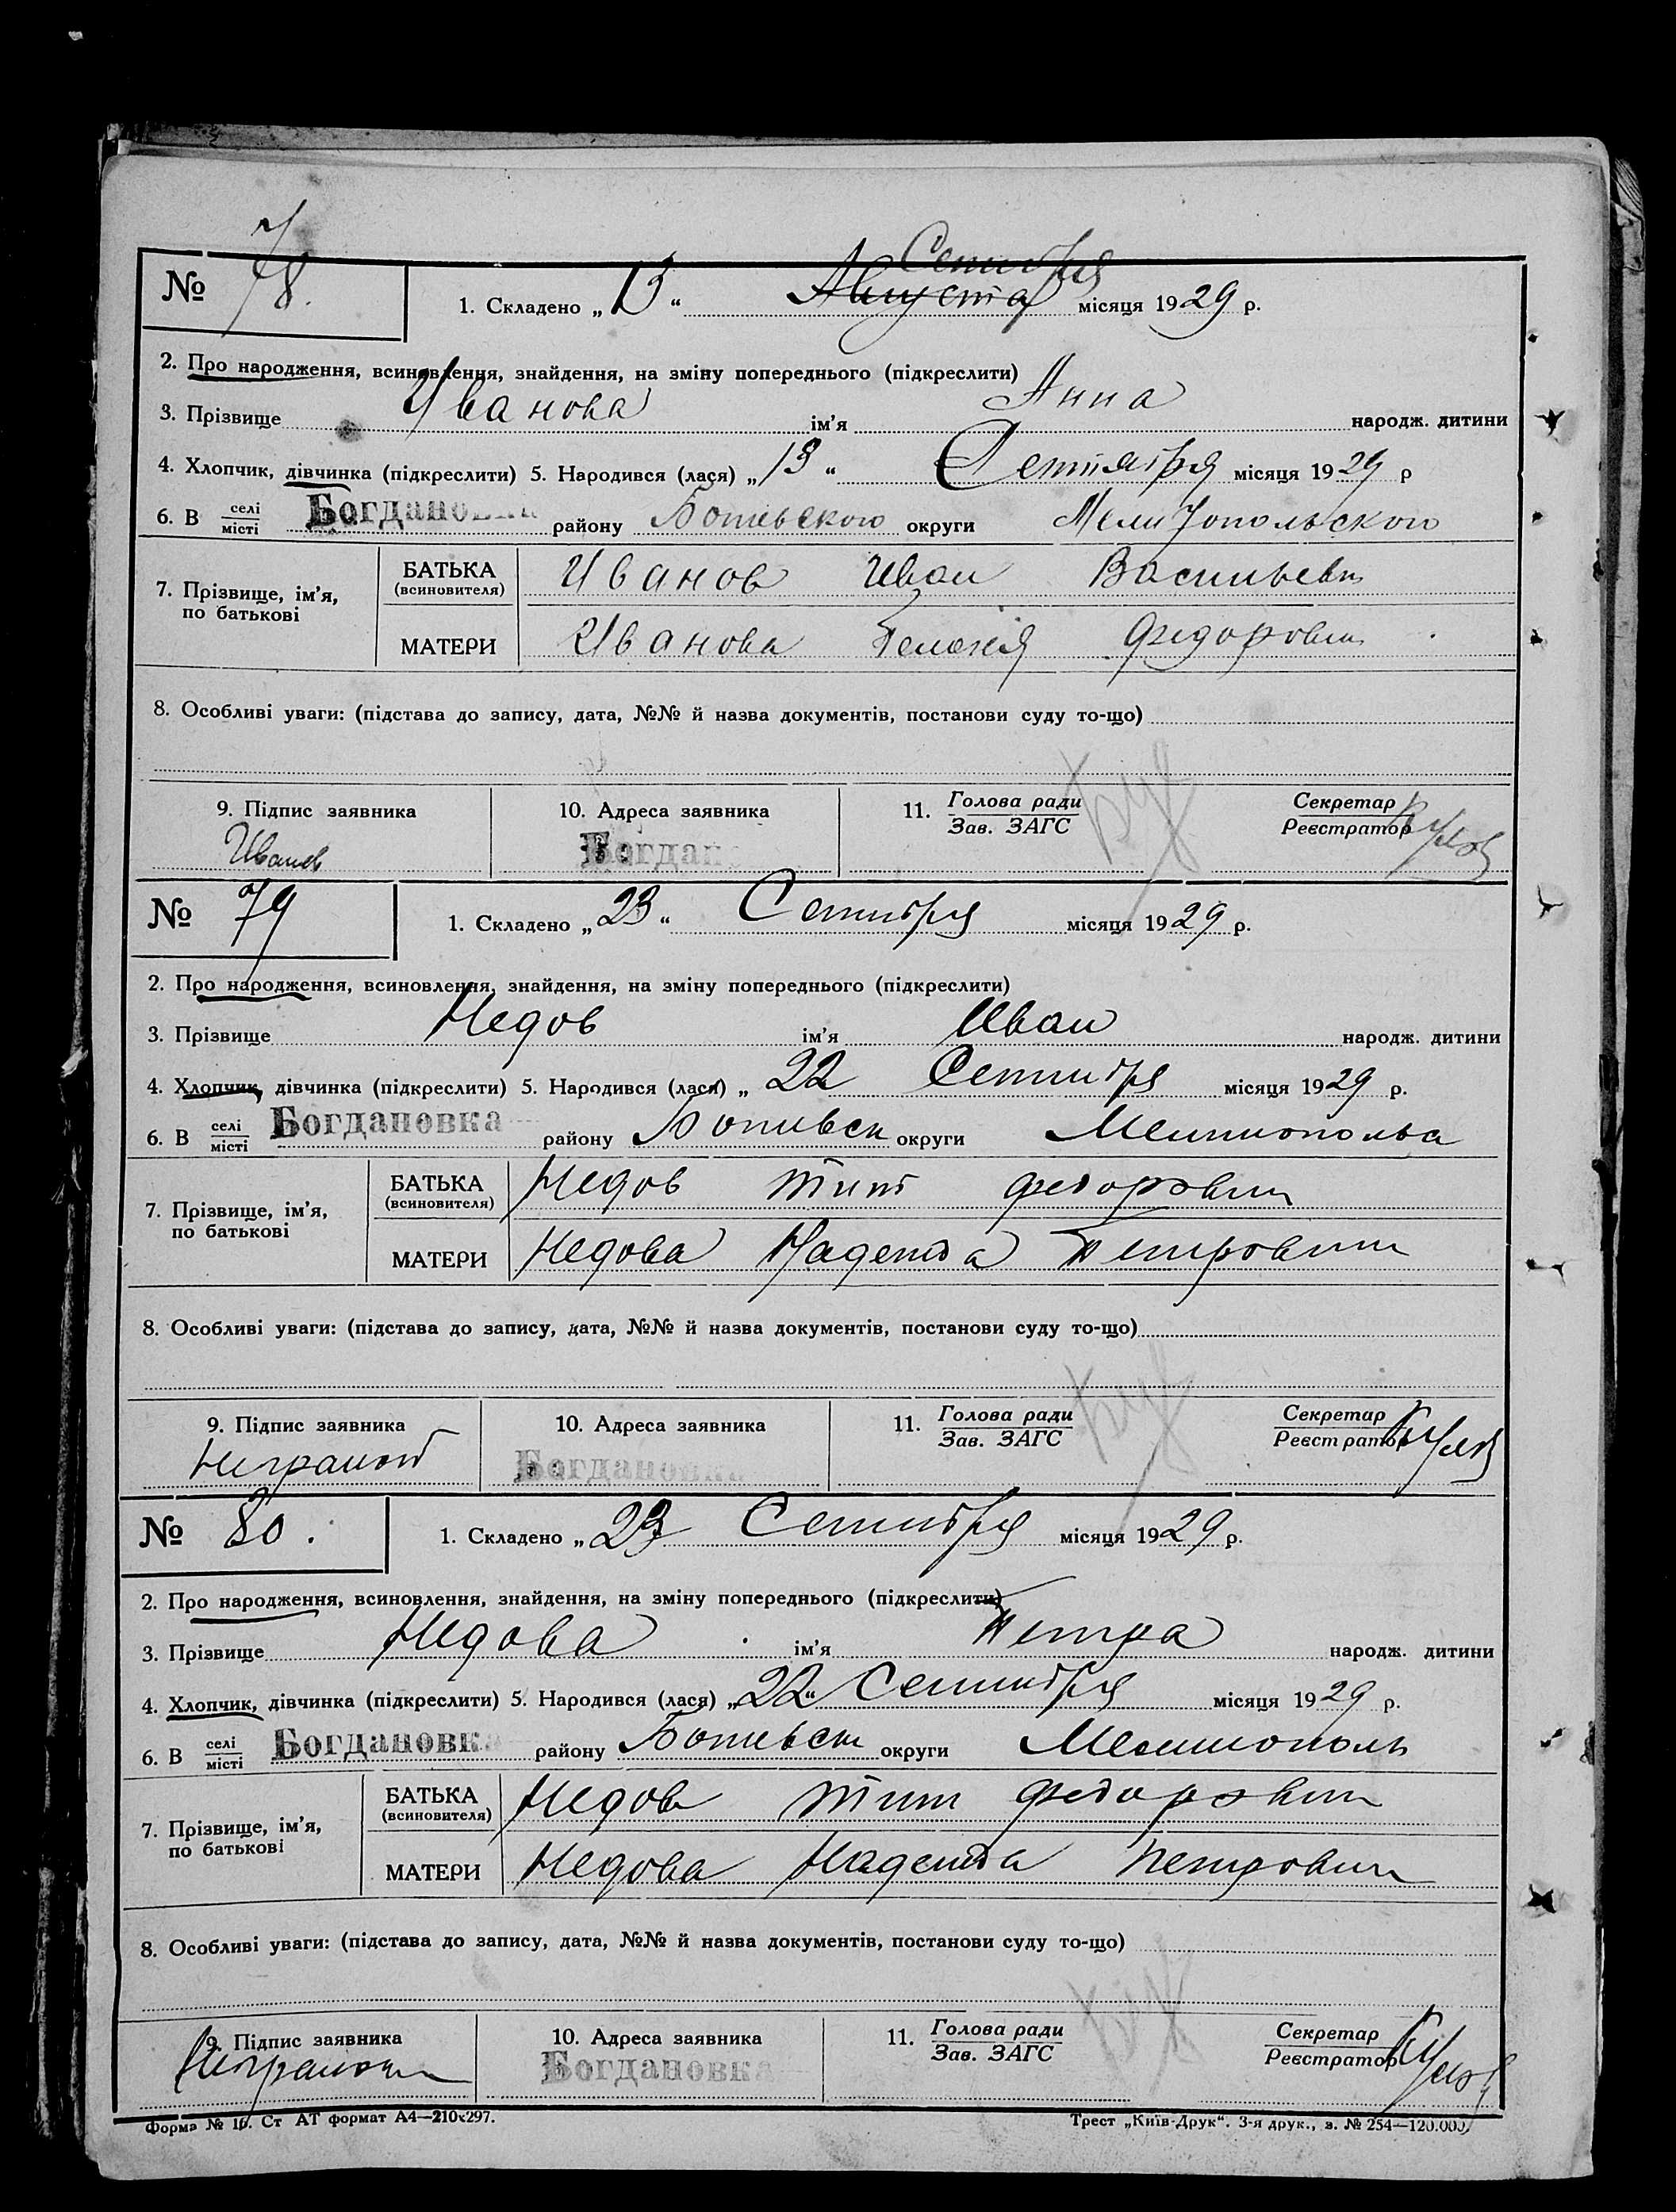 № 78.
Сентября
1. Складено „13“ Августа місяця 1929 р.
2. Про народження, всиновлення, знайдення, на зміну попереднього (підкреслити)
3. Прізвище Иванова ім’я Анна народж. дитини
4. Хлопчик, дівчинка (підкреслити) 5. Народився (лася) „13“ Сентября місяця 1929 р
6. В селі місті Богдановка району Ботевского округи Мелитопольского
7. Прізвище, ім’я, по батькові
БАТЬКА (всиновителя) Иванов Иван Васильевич
МАТЕРИ Иванова Федоровн
8. Особливі уваги: (підстава до запису, дата, №№ й назва документів, постанови суду то-що)
9. Підпис заявника 10. Адреса заявника 11. Голова ради Зав. ЗАГС Секретар Реєстратор
Иванов Богдан
№ 79
1. Складено „23“ Сентибря місяця 1929 р.
2. Про народження, всиновлення, знайдення, на зміну попереднього (підкреслити)
3. Прізвище Недов ім’я Иван народж. дитини
4. Хлопчик, дівчинка (підкреслити) 5. Народився (лася) „ 22 Сентибря місяця 1929 р.
6. В селі місті Богдановка району Ботивск округи Мелитополья
7. Прізвище, ім’я, по батькові
БАТЬКА (всиновителя) Недов Тит Федорович
МАТЕРИ Недова Надежда Петровн
8. Особливі уваги: (підстава до запису, дата, №№ й назва документів, постанови суду то-що)
9. Підпис заявника 10. Адреса заявника 11. Голова ради Зав. ЗАГС Секретар Реєстратор
Неграмот Богдановка
№ 80.
1. Складено „23 Сентибря місяця 1929 р.
2. Про народження, всиновлення, знайдення, на зміну попереднього (підкреслити)
3. Прізвище Недова ім’я Петра народж. дитини
4. Хлопчик, дівчинка (підкреслити) 5. Народився (лася) „22“ Сентибря місяця 1929 р.
6. В селі місті Богдановка району Ботевск округи Мелитополь
7. Прізвище, ім’я, по батькові
БАТЬКА (всиновителя) Недов Тит Федорович
МАТЕРИ Недова Надежда Петровн
8. Особливі уваги: (підстава до запису, дата, №№ й назва документів, постанови суду то-що)
9. Підпис заявника 10. Адреса заявника 11. Голова ради Зав. ЗАГС Секретар Реєстратор
Неграмотн Богдановка
Форма № 16. Ст АТ формат А4—210х297. Трест „Київ-Друк“. 3-я друк., з. № 254—120.000.